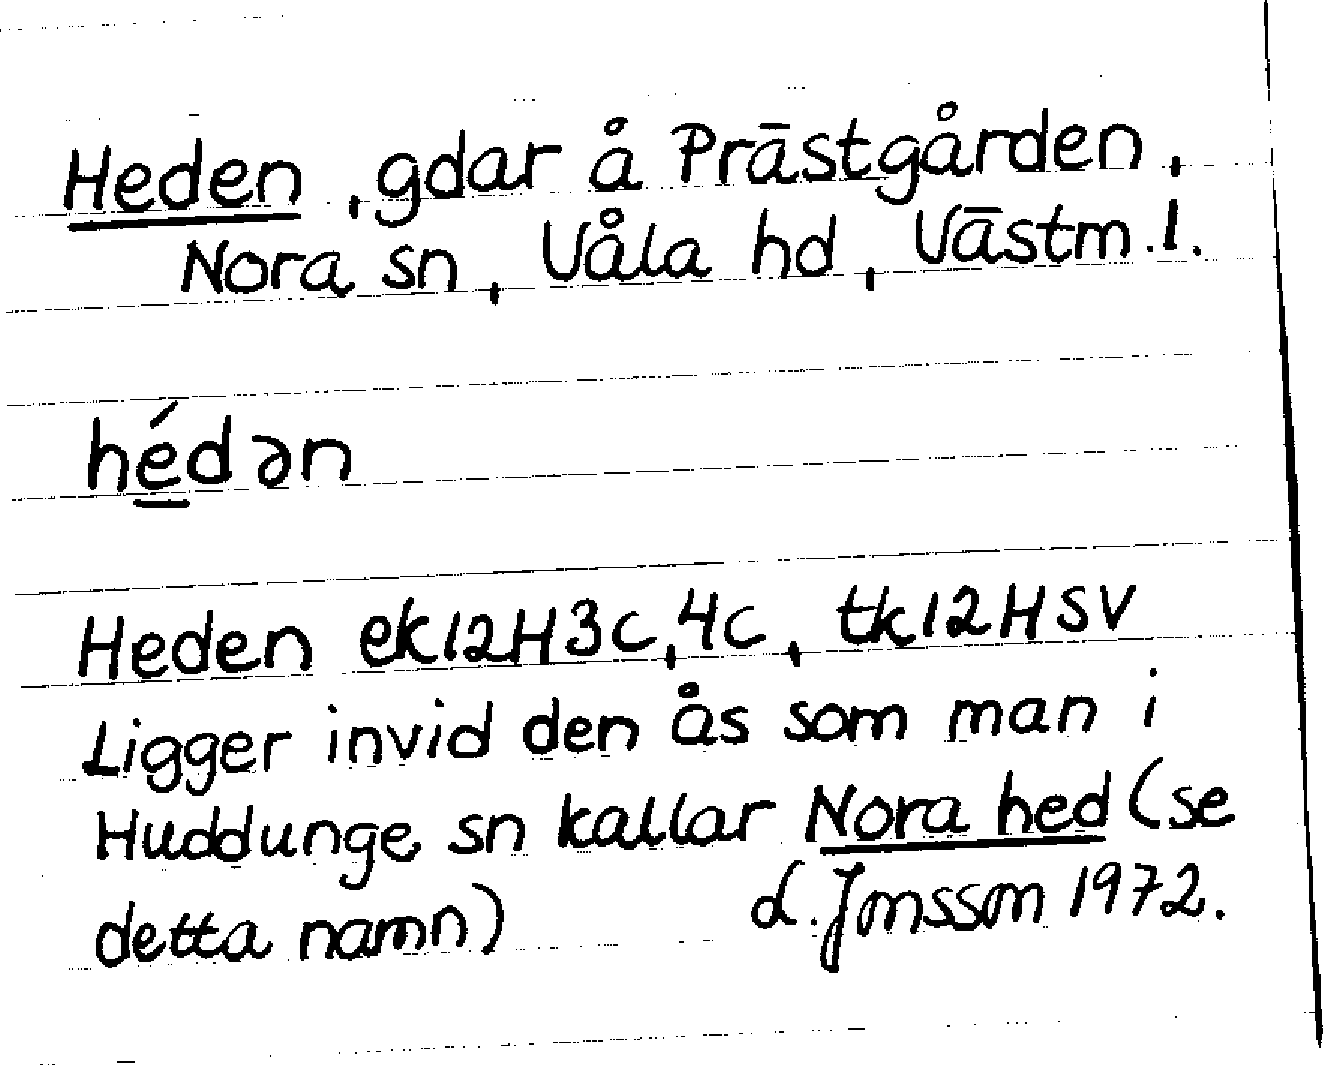 Heden, gdar å Prästgården,
Nora sn, Våla hd, Västm.l.
hédən
Heden ek12H3c,4c, tk12HSV
Ligger invid den ås som man i
Huddunge sn kallar Nora hed (se
detta namn) L. Jonsson 1972.